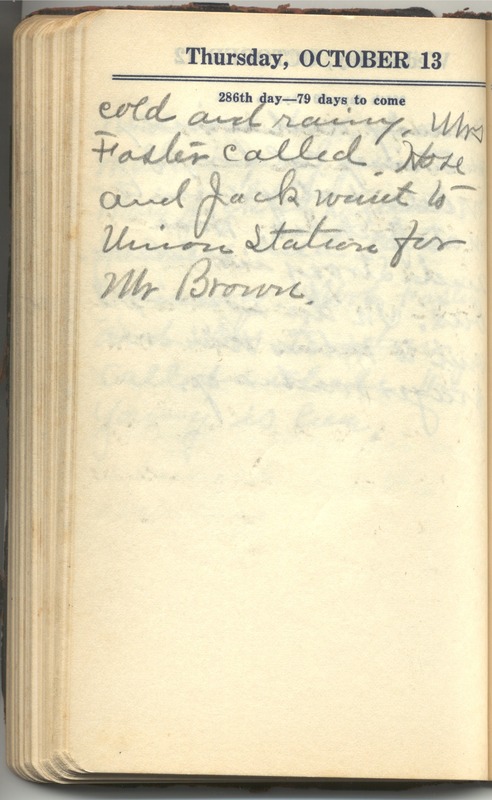 Thursday, OCTOBER 13
286th day—79 days to come
cold and rainy. Mrs
Foster called. Hose
and Jack went to
Union Station for
Mr Brown.